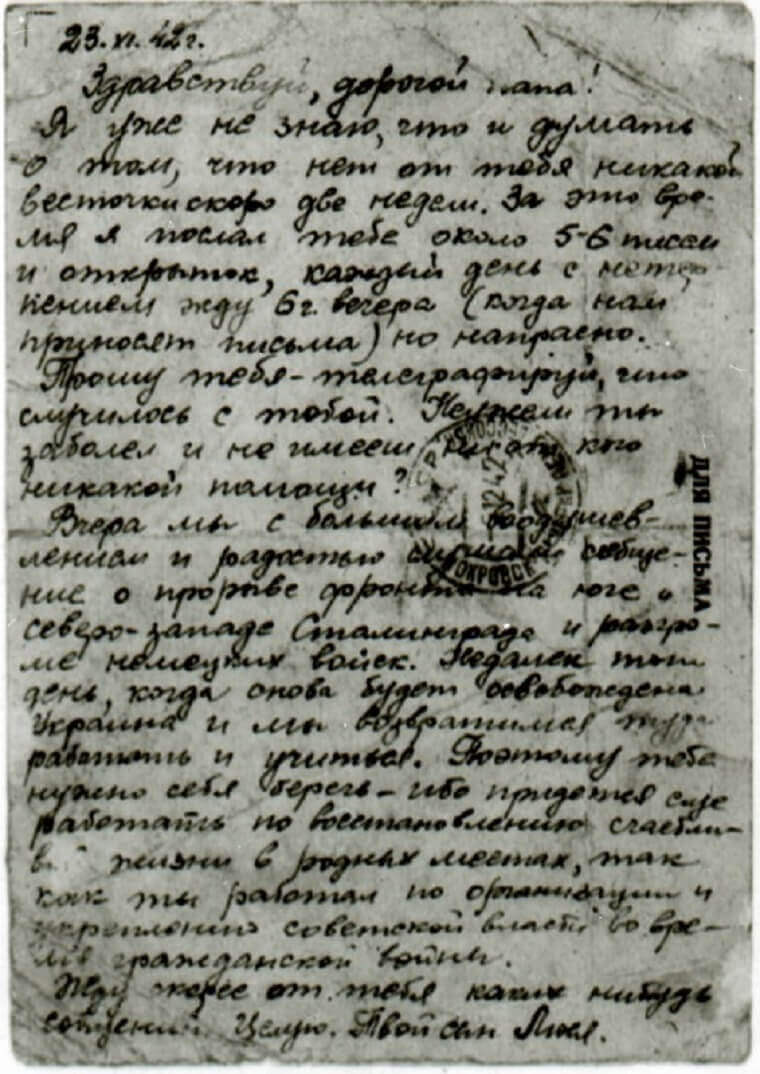 23.XI.42г.
Здравствуй, дорогой папа!
Я уже не знаю, что и думать
о том, что нет от тебя никакой
весточки скоро две недели. За это вре-
мя я послал тебе около 5-6 писем
и открыток, каждый день с нетер-
пением жду 6 г. вечера (когда нам
приносят письма) но напрасно.
Прошу тебя - телеграфируй, что
случилось с тобой. Неужели ты
заболел и не имееш
никакой помощи?
Вчера мы с большим воодушев-
лением и радостью слушали сообще-
ние о прорыве фронта на юге и
северо-западе Сталинграда и разгро-
ме немецких войск. Недалек тот
день, когда снова будет освобождена
Украина и мы возвратимся туда
работать и учиться. Поэтому тебе
нужно себя беречь - ибо придется еще
работать по восстановлению счастли-
вой жизни в родных местах, так
как ты работал по организации и
укреплению советской власти во вре-
мя гражданской войны.
Жду скорее от тебя каких нибудь
сообщений Целую. Твой сын
ДЛЯ ПИСЬМА
12 42
ПОКРОВСК